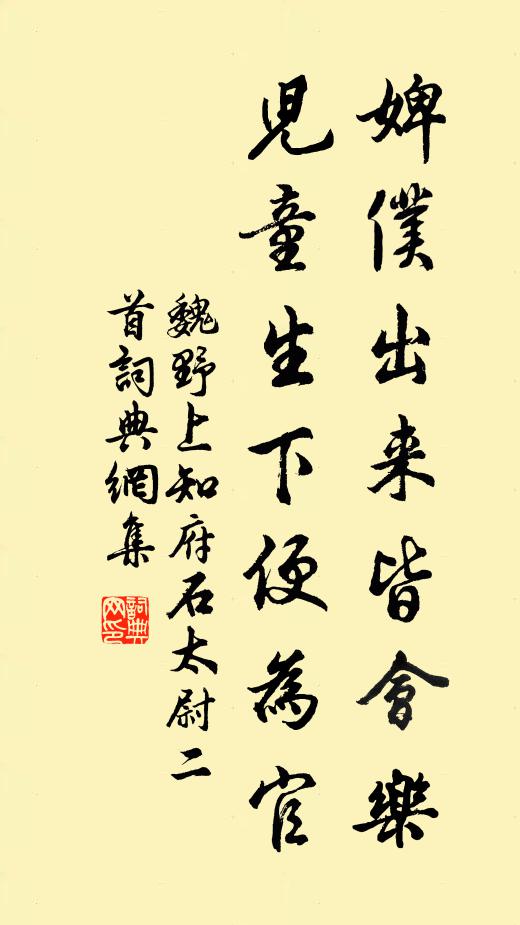 婢僕出来皆會樂
兒童生下便為官
魏野上知府石太尉二
首詞典網集
詞典网印